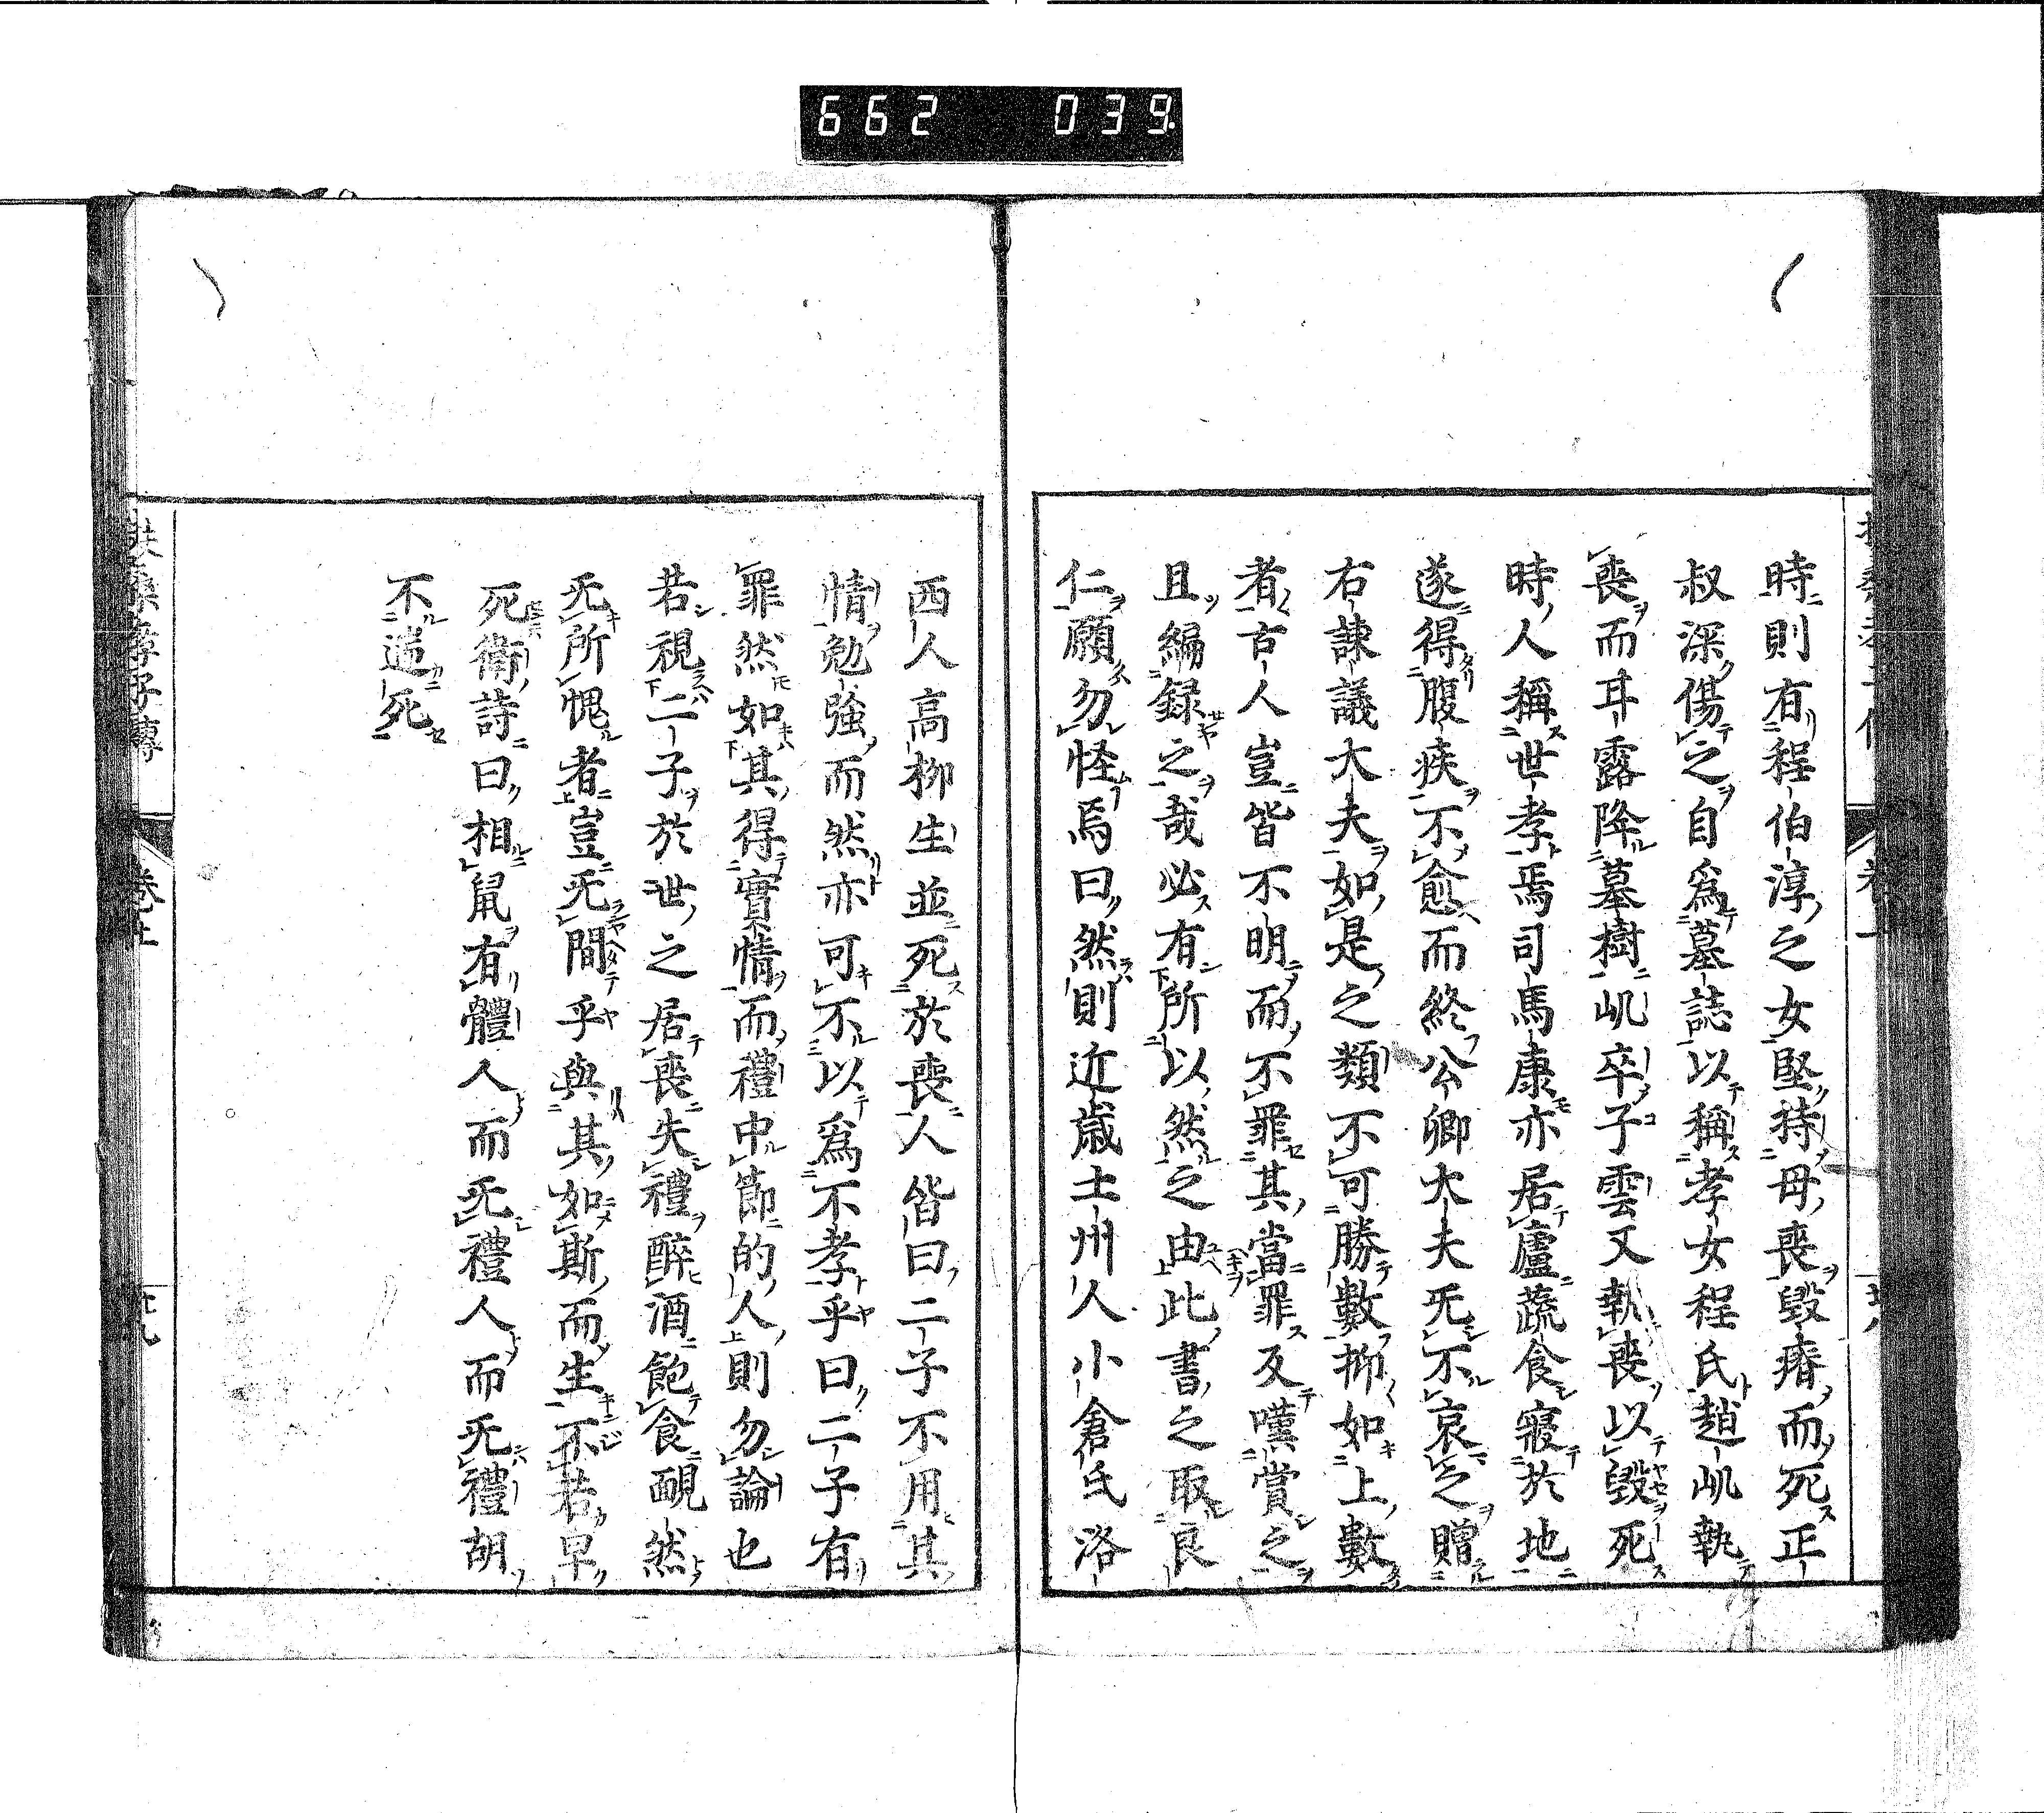 662 039
時則有程伯淳之女堅持母喪毀瘠而死正
叔深傷之自爲墓誌以稱孝女程氏趙屼執
喪而耳露降墓樹屼卒子雲又執喪以毀死
時人稱世孝焉司馬康亦居廬蔬食寢於地
遂得腹疾不愈而終公卿大夫旡不哀之贈
右諫議大夫如是之類不可勝數抑如上數
者古人豈皆不明而不罪其當罪反嘆賞之
且編録之哉必有所以然之由此書之取良
仁願勿怪焉曰然則近歳土州人小倉氏洛
西人高柳生並死於喪人皆曰二子不用其
情勉強而然亦可不以爲不孝乎曰二子有
罪然如其得實情而禮中節的人則勿論也
若視二子於世之居喪失禮醉酒飽食靦然
旡所愧者豈旡間乎與其如斯而生不若早
死衞詩曰相鼠有體人而旡禮人而旡禮胡
不遄死
孝子傳